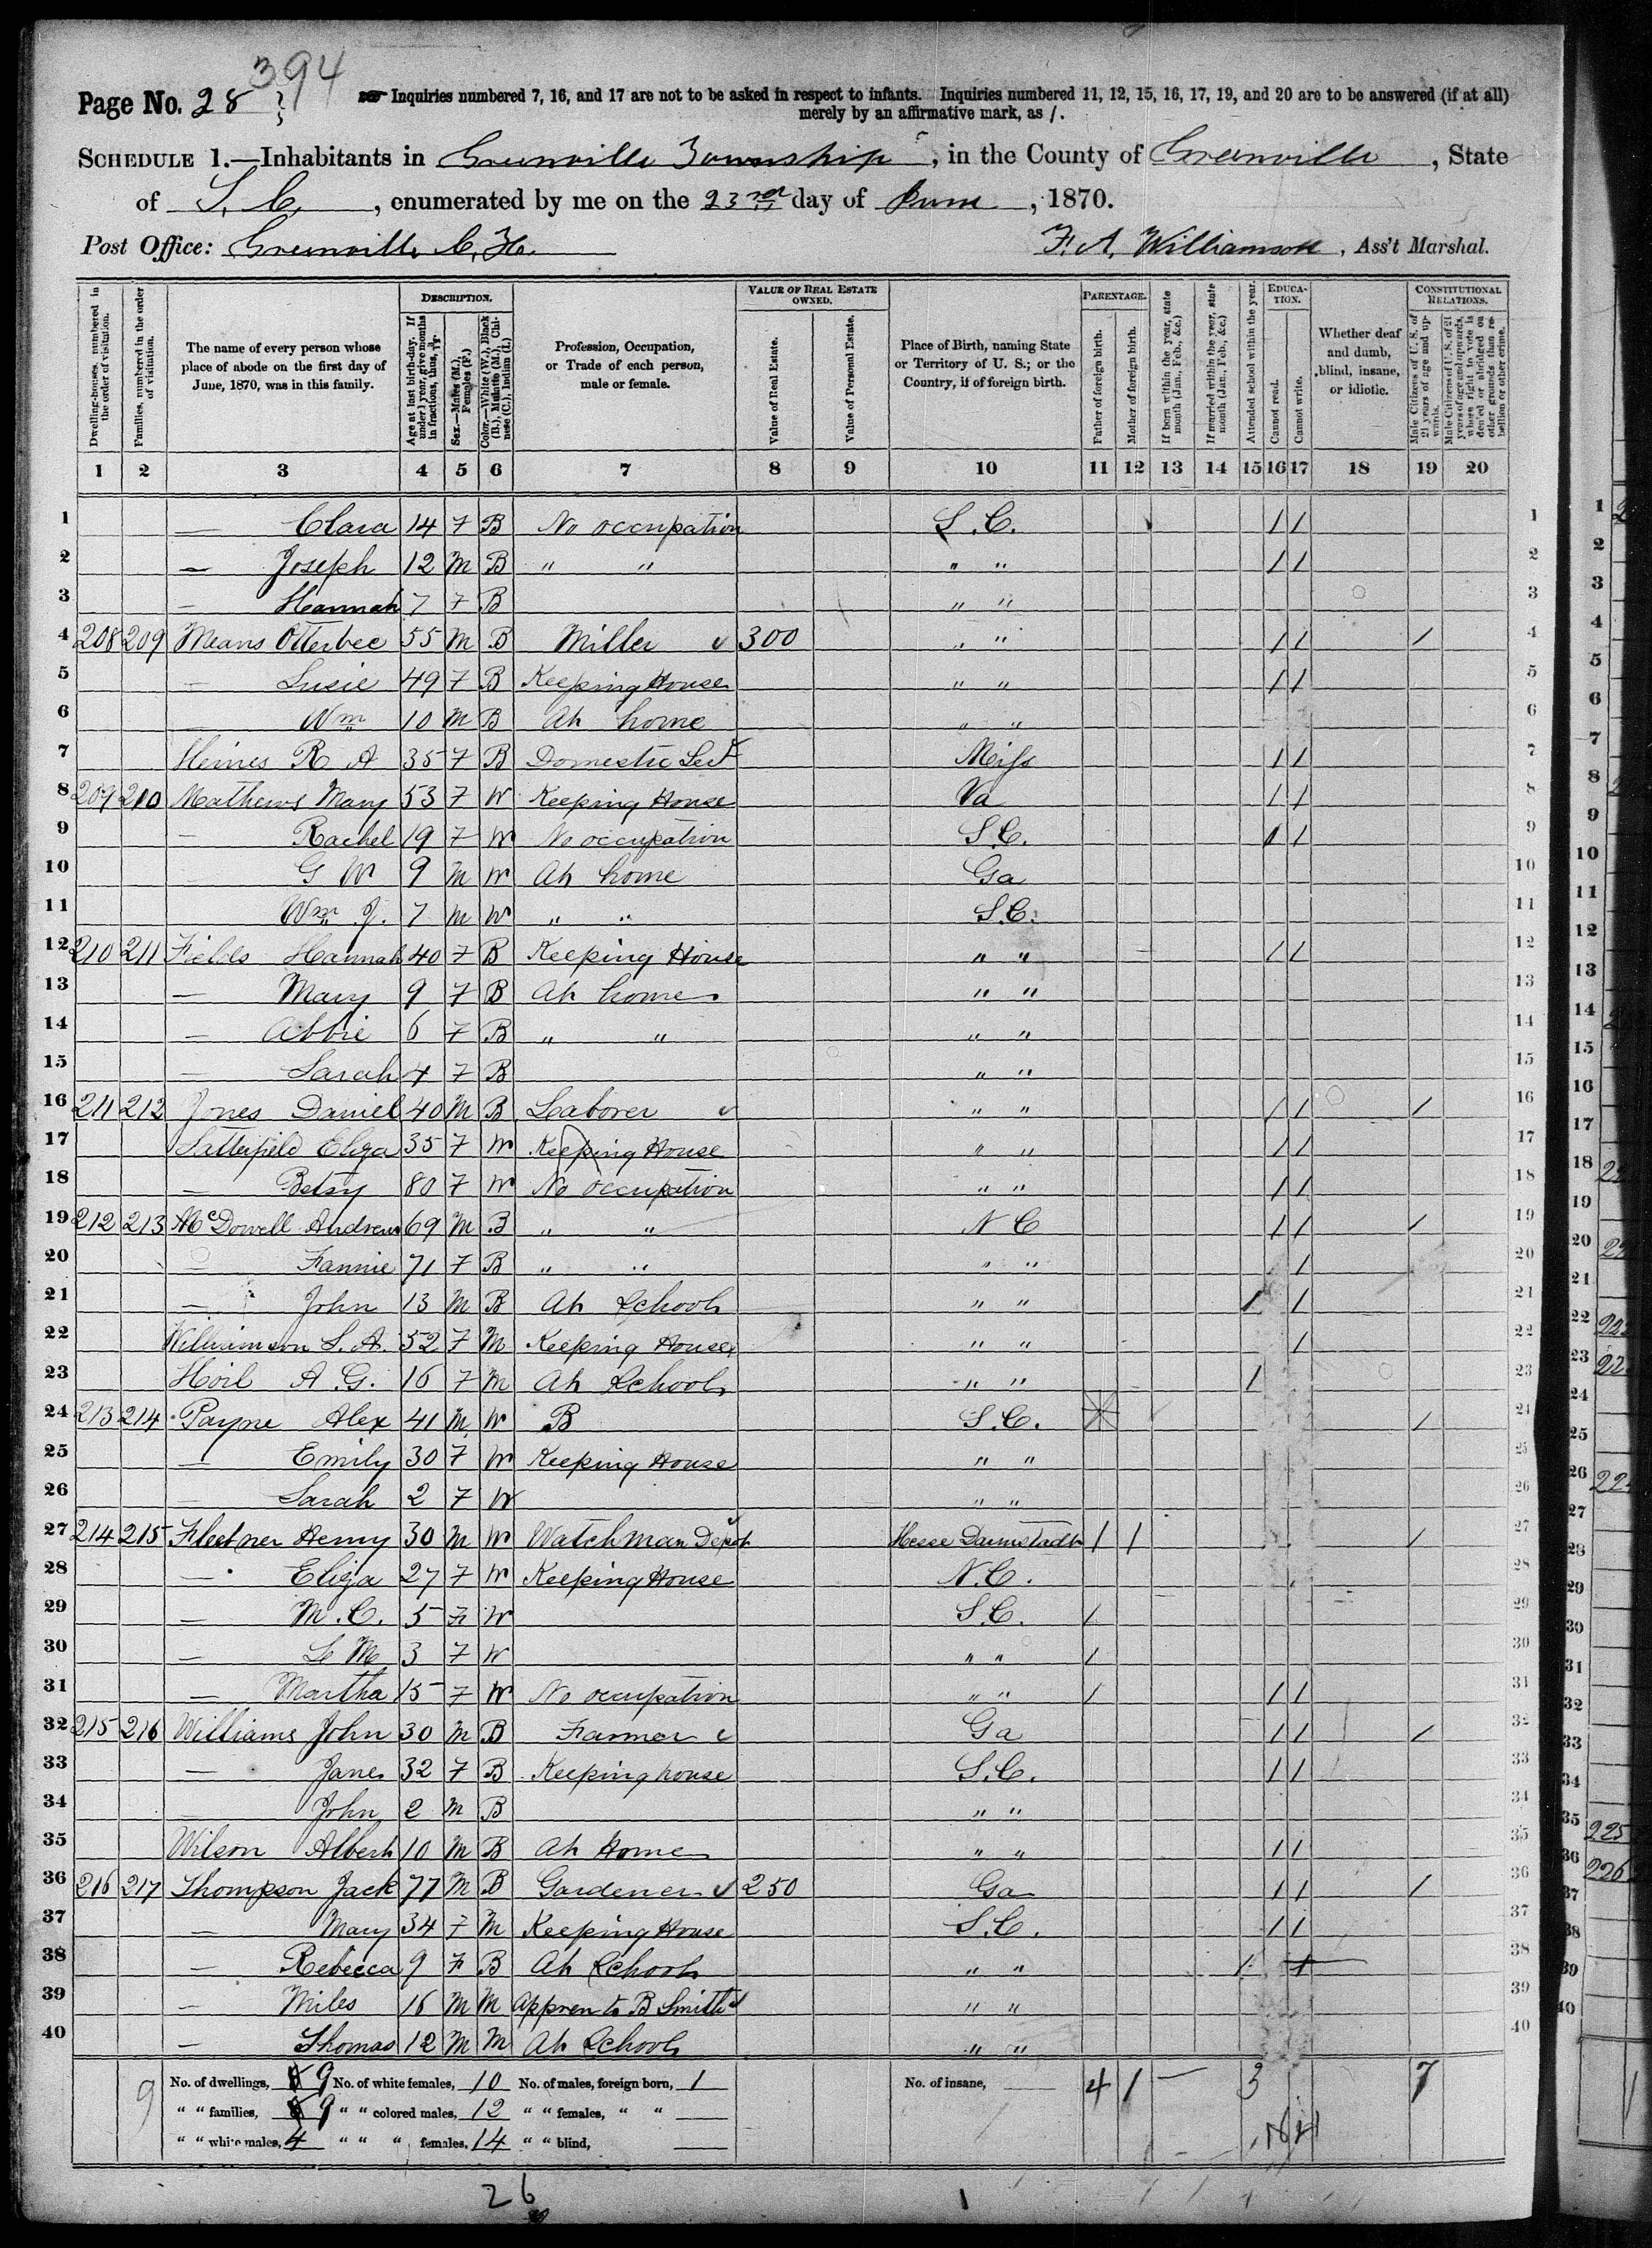 394
Page No. 28
Inquiries numbered 7, 16, and 17 are not to be asked in respect to infants. Inquiries numbered 11, 12, 15, 16, 17, 19, and 20 are to be answered (if at all)
merely by an affirmative mark, as /.
Schedule 1.—Inhabitants in Greenville Township, in the County of Greenville, State
of S. C., enumerated by me on the 23rd day of June, 1870.
Post Office: Greenville C. H. F. A. Williamson, Ass't Marshal.
Description. Value of Real Estate Owned. Parentage. Education. Constitutional Relations.
Dwelling-houses, numbered in the order of visitation.
Families, numbered in the order of visitation.
The name of every person whose place of abode on the first day of June, 1870, was in this family.
Age at last birth-day. If under 1 year, give months in fractions, thus,
Sex.—Males (M.), Females (F.)
Color.—White (W.), Black (B.), Mulatto (M.), Chinese (C.), Indian (I.)
Profession, Occupation, or Trade of each person, male or female.
Value of Real Estate.
Value of Personal Estate.
Place of Birth, naming State or Territory of U. S.; or the Country, if of foreign birth.
Father of foreign birth.
Mother of foreign birth.
If born within the year, state month (Jan., Feb., &c.)
If married within the year, state month (Jan., Feb., &c.)
Attended school within the year.
Cannot read.
Cannot write.
Whether deaf and dumb, blind, insane, or idiotic.
Male Citizens of U. S. of 21 years of age and upwards.
Male Citizens of U. S. of 21 years of age and upwards, whose right to vote is denied or abridged on other grounds than rebellion or other crime.
1 2 3 4 5 6 7 8 9 10 11 12 13 14 15 16 17 18 19 20
1 — Clara 14 F B No occupation S. C. / / 1
2 — Joseph 12 M B " " " " / / 2
3 — Hannah 7 F B " " 3
4 208 209 Means Otterbee 55 M B Miller 300 " " / / / 4
5 — Lusie 49 F B Keeping House " " / / 5
6 — Wm 10 M B At home " " 6
7 Heines R A 35 F B Domestic Sert Miss / / 7
8 209 210 Mathews Mary 53 F W Keeping House Va / / 8
9 — Rachel 19 F W No occupation S. C. / / 9
10 G W 9 M W At home Ga 10
11 Wm J. 7 M W " " S. C. 11
12 210 211 Fields Hannah 40 F B Keeping House " " / / 12
13 — Mary 9 F B At home " " 13
14 — Abbie 6 F B " " " " 14
15 — Sarah 4 F B " " 15
16 211 212 Jones Daniel 40 M B Laborer " " / / / 16
17 Satterfield Eliza 35 F W Keeping House " " / / 17
18 — Betsy 80 F W No occupation " " / / 18
19 212 213 McDowell Andrew 69 M B " " N C / / / 19
20 — Fannie 71 F B " " " " / 20
21 — John 13 M B At School " " / / 21
22 Williamson S. A. 52 F M Keeping House " " / 22
23 Hoil A. G. 16 F M At School " " / 23
24 213 214 Payne Alex 41 M W B S. C. / 24
25 — Emily 30 F W Keeping House " " 25
26 — Sarah 2 F W " " 26
27 214 215 Fleetner Henry 30 M W Watchman Depot Hesse Darmstadt / / / 27
28 — Eliza 27 F W Keeping House N. C. 28
29 — M. C. 5 F W S. C. / 29
30 — L M 3 F W " " / 30
31 — Martha 15 F W No occupation " " / / / 31
32 215 216 Williams John 30 M B Farmer Ga / / / 32
33 — Jane 32 F B Keeping house S. C. / / 33
34 — John 2 M B " " 34
35 Wilson Albert 10 M B At Home " " / / 35
36 216 217 Thompson Jack 77 M B Gardener 250 Ga / / / 36
37 — Mary 34 F M Keeping House S. C. / / 37
38 — Rebecca 9 F B At School " " / / 38
39 — Miles 16 M M Appren to B Smith " " 39
40 — Thomas 12 M M At School " " 40
9 No. of dwellings, 9 No. of white females, 10 No. of males, foreign born, 1 No. of insane, — 4 1 — 3 7
" " families, 9 " " colored males, 12 " " females, " "
" " white males, 4 " " " females, 14 " " blind,
26